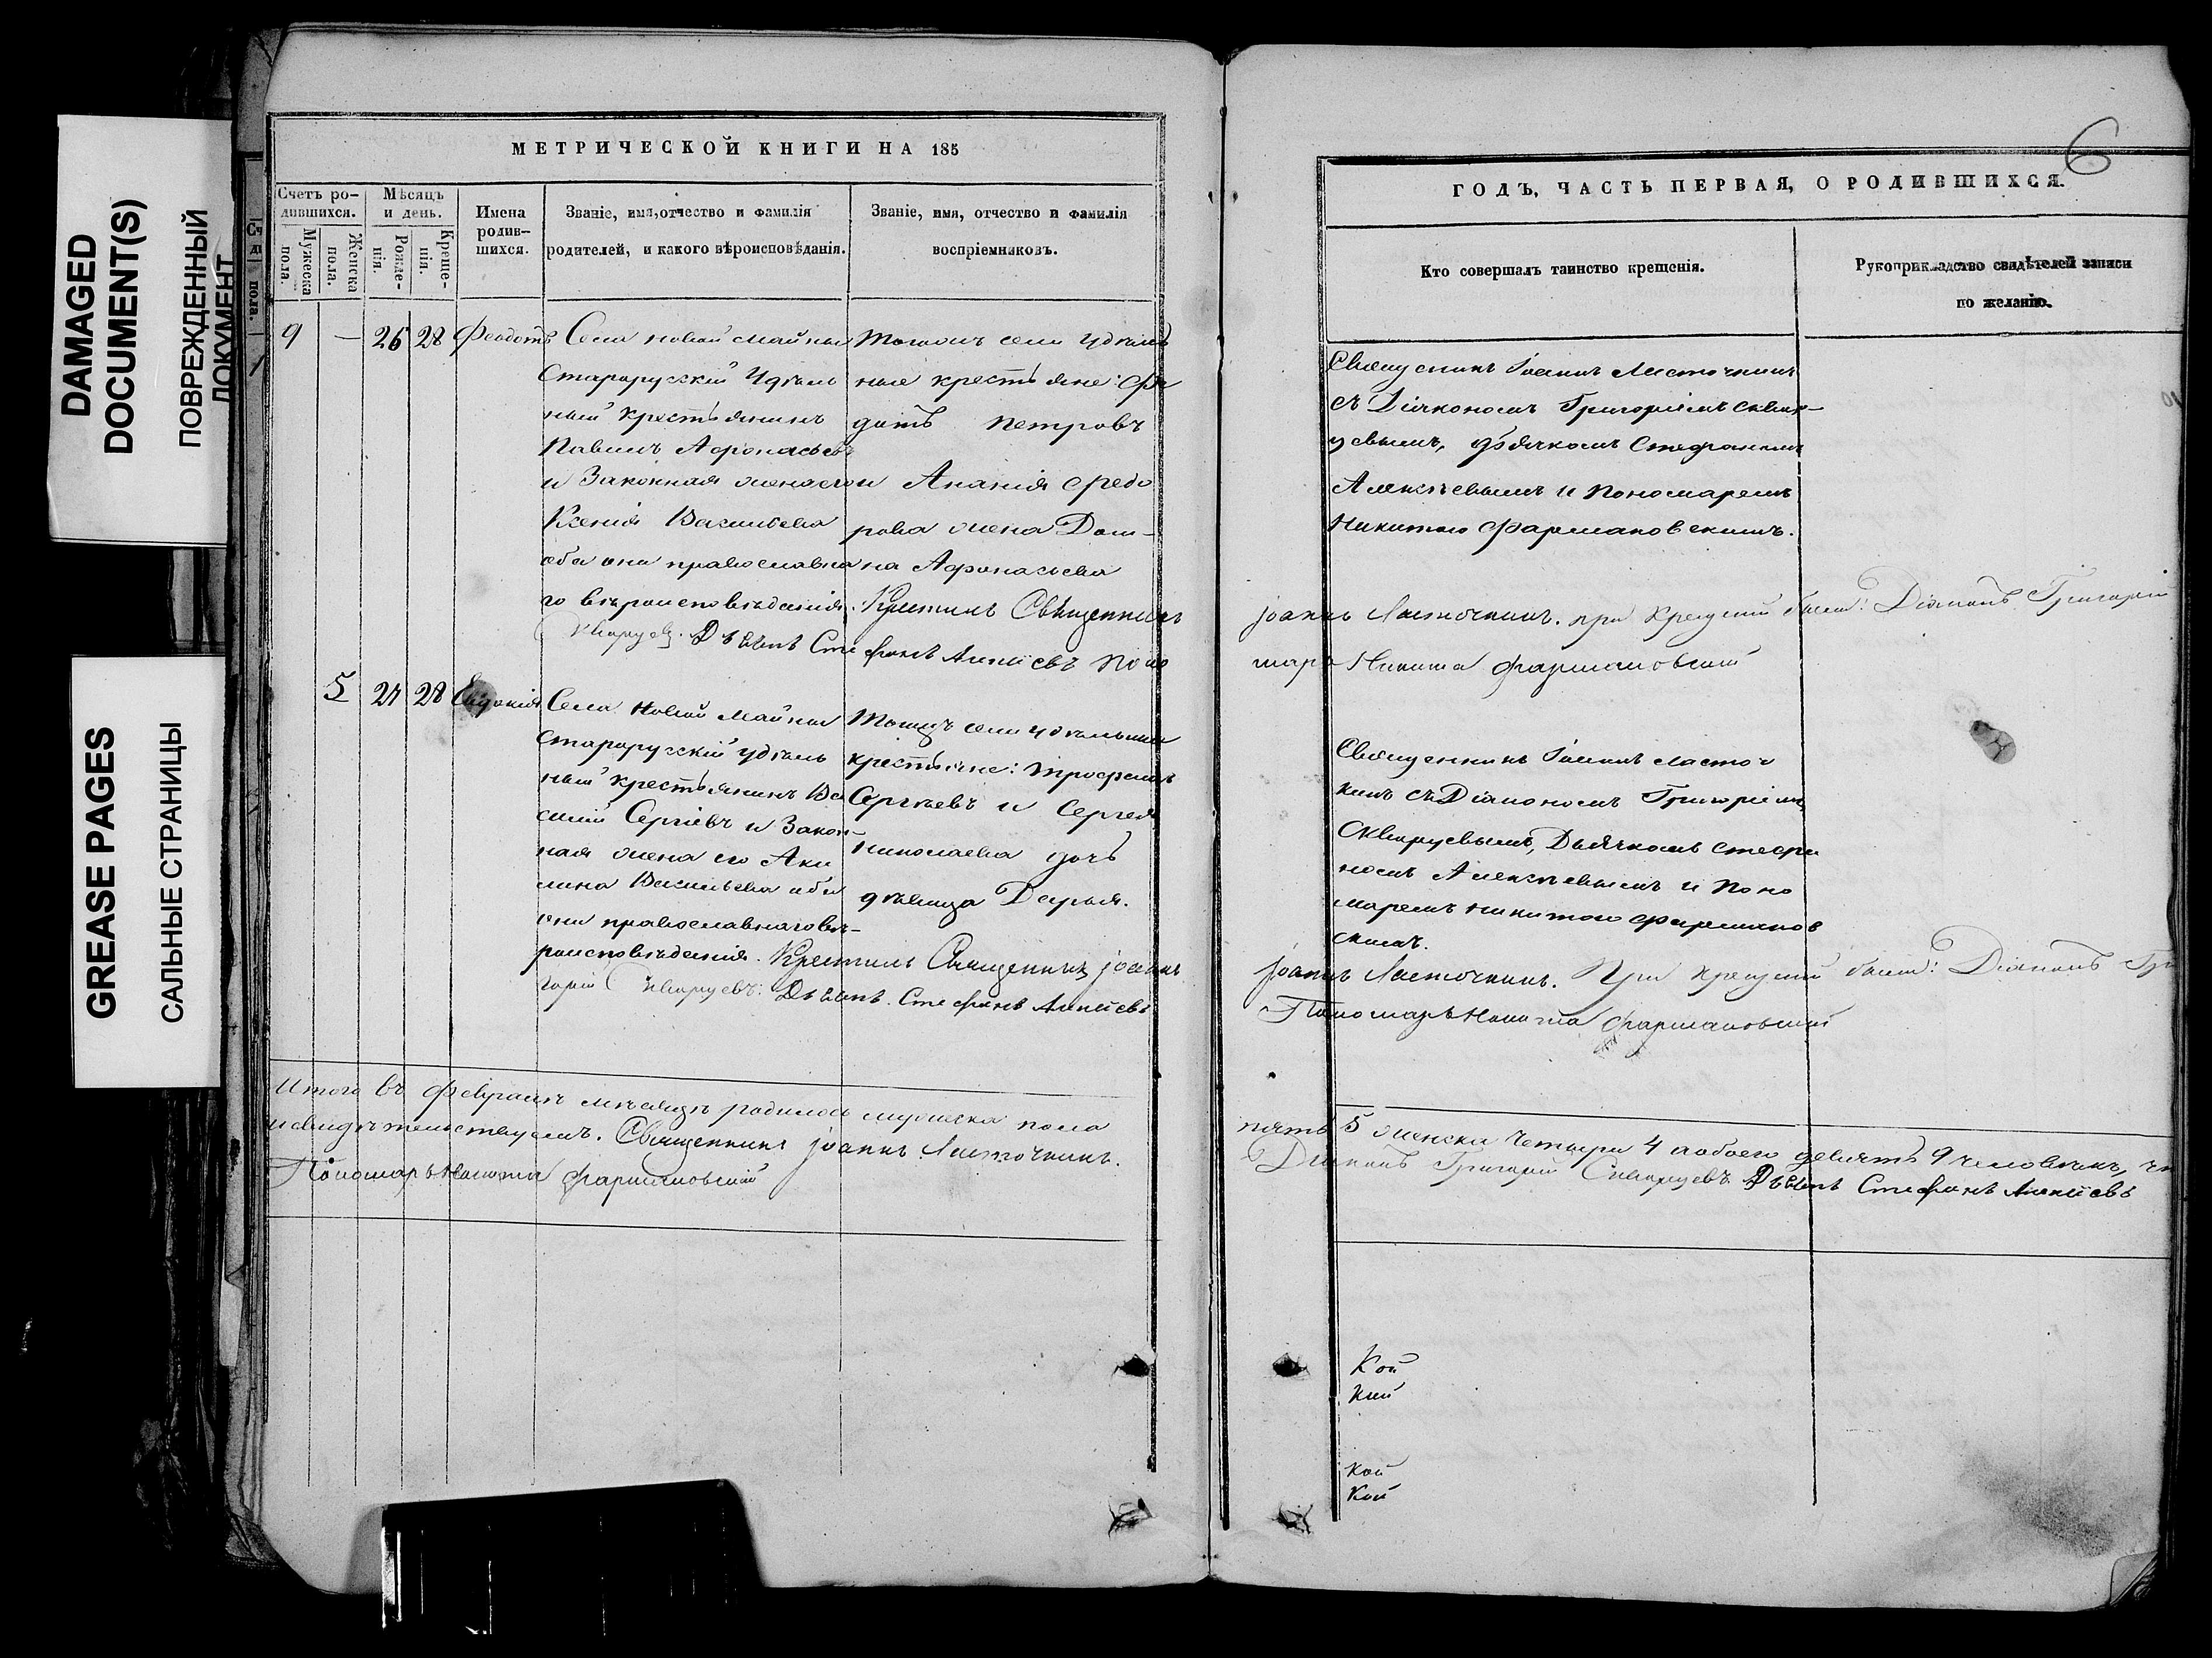 DAMAGED
DOCUMENT(S)
ПОВРЕЖДЕННЫЙ
ДОКУМЕНТ
GREASE PAGES
САЛЬНЫЕ СТРАНИЦЫ
МЕТРИЧЕСКОЙ КНИГИ НА 185
Счетъ ро-
дившихся.
Мужеска пола.
Женска пола.
Мѣсяцъ
и день.
Рожде-
нія.
Креще-
нія.
Имена
родив-
шихся.
Званіе, имя, отчество и фамилія
родителей, и какого вѣроисповѣданія.
Званіе, имя, отчество и фамилія
воспріемниковъ.
9 — 26 28 Феодотъ
Села новой Майны
Старорусскій Удѣль
ный крестьянинъ
Павелъ Афонасьевъ
и Законная жена его
Ксенія Васильева
оба они православна
го вѣроисповѣданія.
тогожъ села удѣль
ные крестьяне: Фе
дотъ Петровъ
и Ананія Федо
рова жена Дом-
на Афонасьева
Крестилъ Священникъ
Скворцевъ. Дьячекъ Стефанъ Алексіевъ Поно
5 27 28 Евдокія
Села Новой Майны
Старорусскій удѣль
ный крестьянинъ Ва
силій Сергіевъ и Закон-
ная жена его Аку
лина Васильева оба
они православнаго вѣ-
роисповѣданія.
тогожъ села удѣльные
крестьяне: Трофимъ
Сергѣевъ и Сергея
Николаева дочь
дѣвица Дарья.
Крестилъ Священникъ Іоаннъ
горій Скворцевъ. Дьячекъ Стефанъ Алексіевъ
Итого въ Февралѣ мѣсяцѣ родилось мужеска пола
и свидѣтельствуемъ. Священникъ Іоаннъ Ласточкинъ.
Пономарь Никита Фармаковскій
6
ГОДЪ, ЧАСТЬ ПЕРВАЯ, О РОДИВШИХСЯ.
Кто совершалъ таинство крещенія.
Рукоприкладство свидѣтелей записи
по желанію.
Священникъ Іоаннъ Ласточкинъ
съ Діакономъ Григоріемъ Сквор-
цевымъ, дьячкомъ Стефаномъ
Алексѣевымъ и Пономаремъ
Никитою Фармаковскимъ.
Іоаннъ Ласточкинъ. при крещеніи были: Діаконъ Григорій
марь Никита Фармаковскій
Священникъ Іоаннъ Ласточ
кинъ съ Діакономъ Григоріемъ
Скворцевымъ, Дьячкомъ Стефа
номъ Алексѣевымъ и Поно
маремъ Никитою Фармаков
скимъ.
Іоаннъ Ласточкинъ. При крещеніи были: Діаконъ Гри
Пономарь Никита Фармаковскій
пять 5 женска четыре 4 а обоего девять 9 человѣкъ, чт
Діаконъ Григорій Скворцевъ Дьячекъ Стефанъ Алексіевъ
Кой
Кій
Кой
Кой